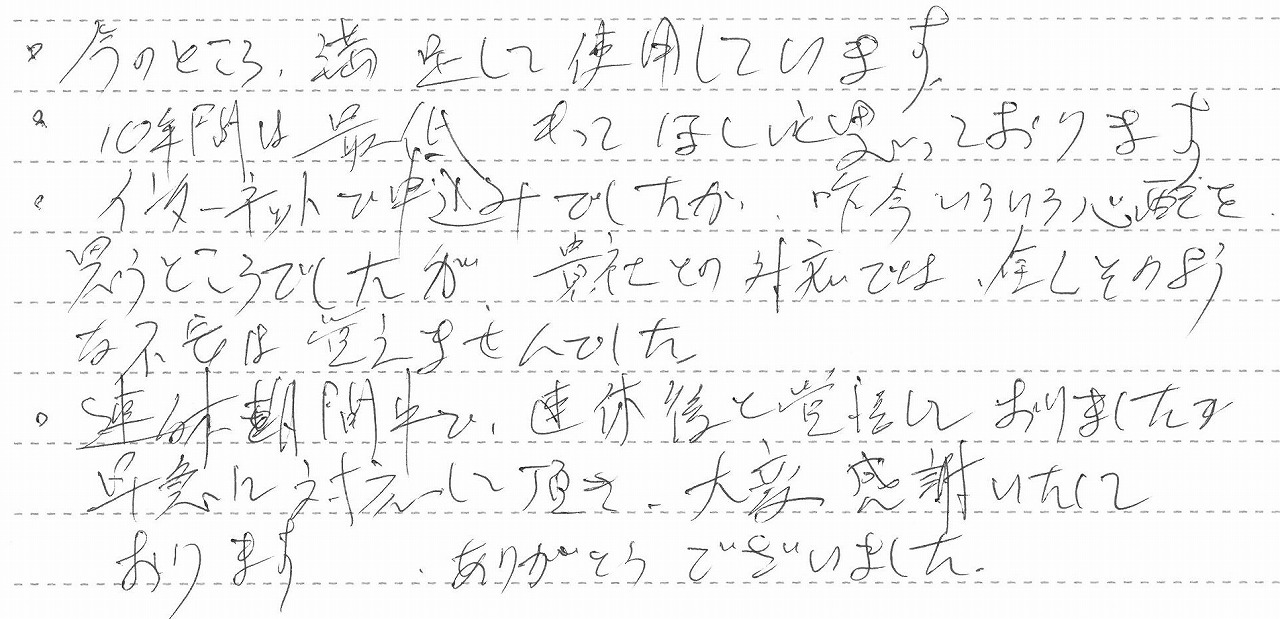 ・今のところ、満足して使用しています。
・10年間は最低 もってほしいと思っております
・インターネットで申込みでしたが、昨今いろいろ心配を
思うところでしたが、貴社との対応では、全くそのよう
な不安は覚えませんでした
・連休期間中で、連休後と覚悟しておりましたが
早急に対応して頂き、大変感謝いたして
おります、ありがとうございました。